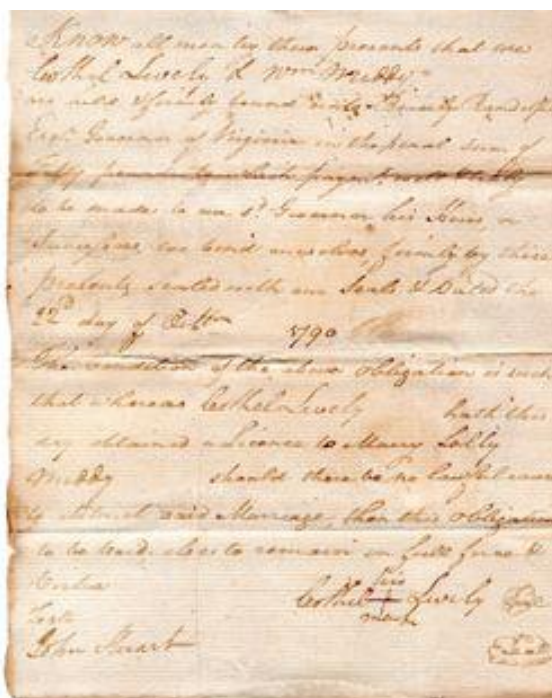 Know all men by these presents that we
Cothel Lively & Wm Middy
are held & firmly bound unto Beverly Randolph
Esqr. Governor of Virginia in the penal sum of
Fifty pounds to which payment well & truly
to be made to our sd. Governor his Heirs, or
Successors, we bind ourselves, firmly by these
presents, sealed with our Seals & Dated this
22d day of 1790
The condition of the above Obligation is such
that whereas Cothel Lively hath this
day obtained a Licence to Marry Sally
Middy should there be no lawful cause
to obstruct said Marriage, then this obligation
to be void. else to remain in full force &
Virtue
Teste
Cothel his + mark Lively
John Stuart